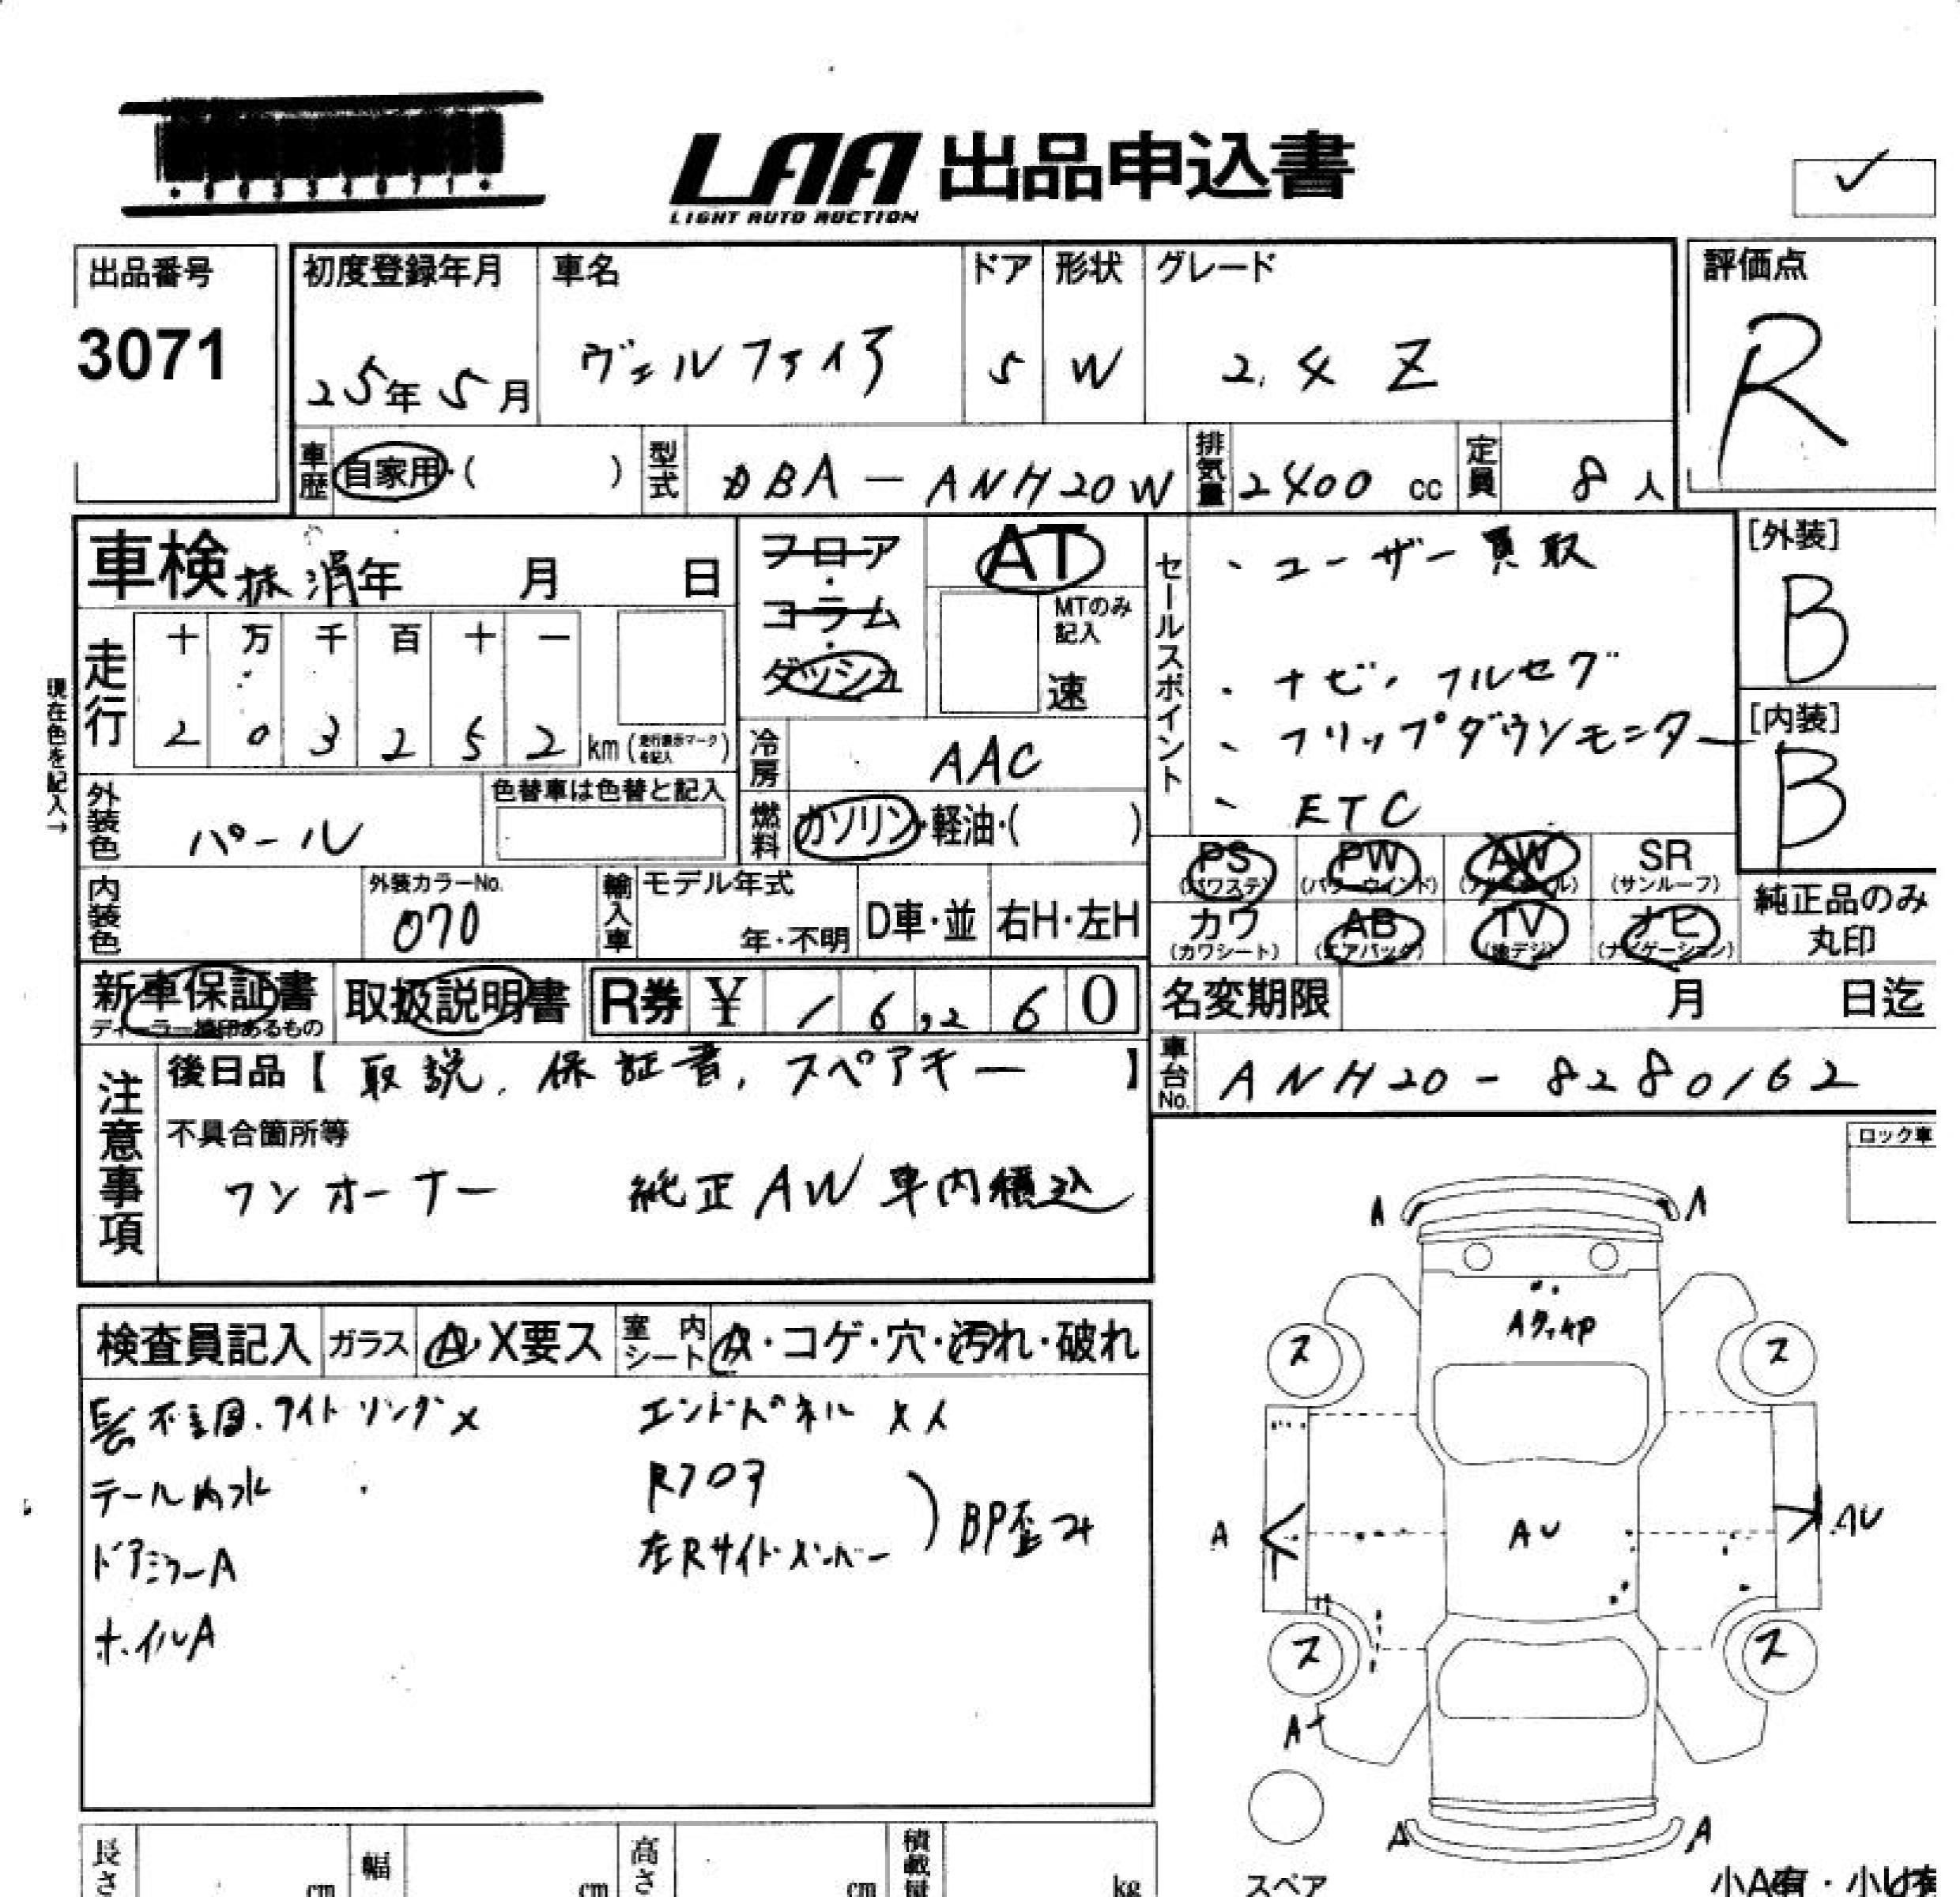 LAA 出品申込書
LIGHT AUTO AUCTION
出品番号
3071
初度登録年月
25年 5月
車名
ヴェルファイア
ドア
5
形状
W
グレード
2.4 Z
評価点
R
車歴
自家用・( )
型式
DBA-ANH20W
排気量
2400 cc
定員
8 人
車検 抹消 年 月 日
走行
十 万 千 百 十 一
2 0 3 2 5 2 km (走行表示マークを記入)
現在色を記入→
フロア・コラム・ダッシュ
AT
MTのみ記入
速
冷房
AAC
燃料
ガソリン・軽油・( )
セールスポイント
、ユーザー買取
・ナビ、フルセグ
、フリップダウンモニター
、ETC
[外装]
B
[内装]
B
外装色
パール
色替車は色替と記入
内装色
外装カラーNo.
070
輸入車
モデル年式
年・不明
D車・並
右H・左H
PS (パワステ)
PW (パワーウインド)
AW
SR (サンルーフ)
カワ (カワシート)
AB (エアバッグ)
TV (地デジ)
ナビ (ナビゲーション)
純正品のみ丸印
新車保証書
取扱説明書
R券 ¥ 16,260
名変期限 月 日迄
車台No.
ANH20-8280162
注意事項
後日品【 取説、保証書、スペアキー 】
不具合箇所等
ワンオーナー 純正AW車内積込
ロック車
検査員記入
ガラス
A・X要ス
室内シート
A・コゲ・穴・汚れ・破れ
不調、ライトリングX
テール内水
ドアミラーA
ホイルA
エンドパネル XX
Rフロア
左Rサイドメンバー
BP歪み
A
A
A
ス
ス
A
AU
AU
ス
ス
A
A
スペア
長さ
cm
幅
cm
高さ
cm
積載量
kg
小A有・小U有